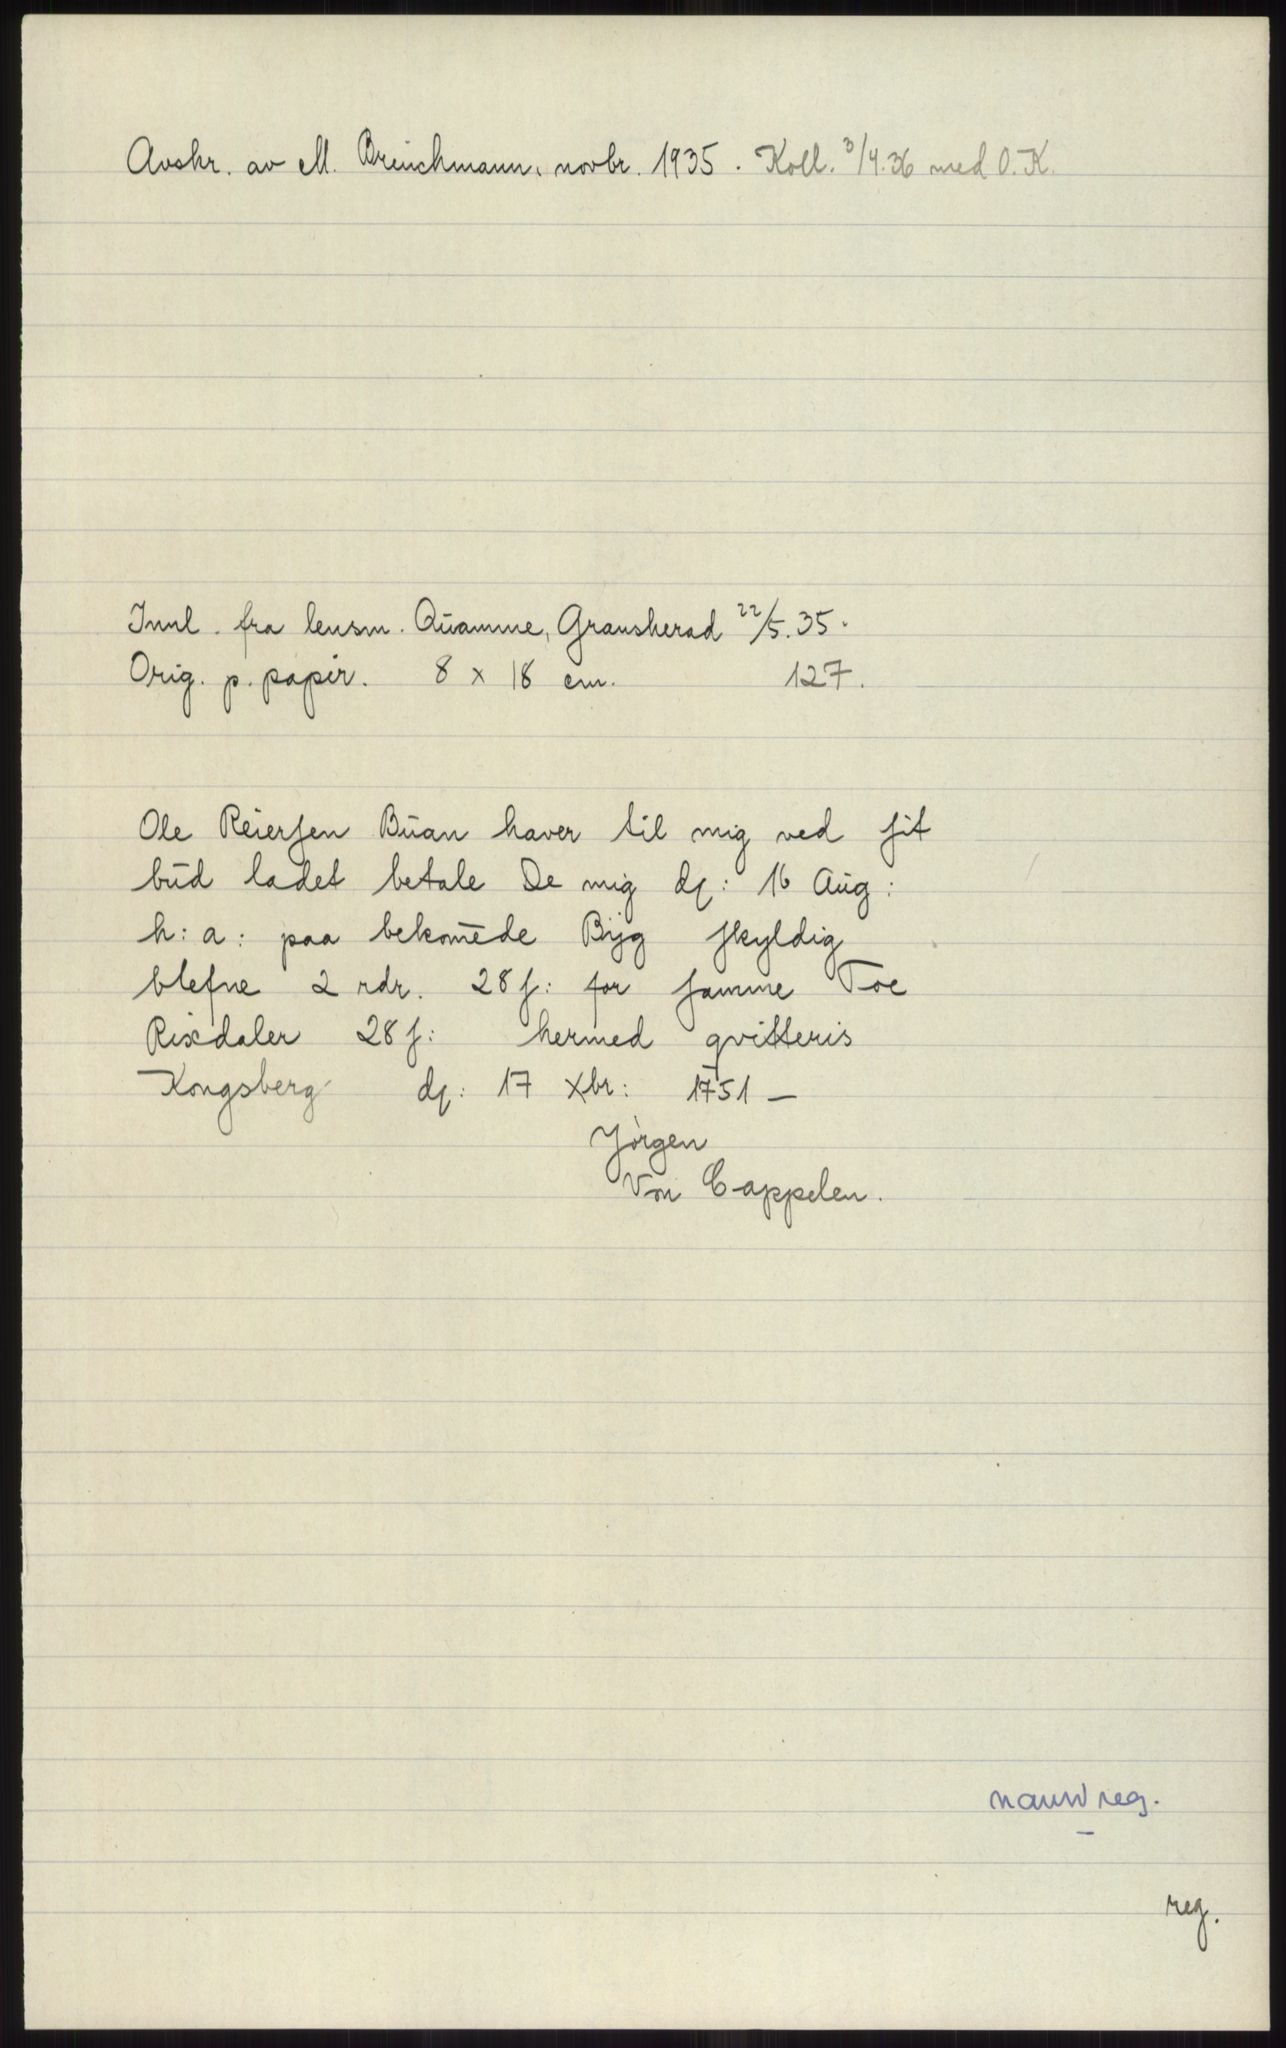 Avskr. av M. Brinchmann, novbr. 1935. Koll. 3/4.36 med O.K.
Innl. fra lensm. Quamme, Gransherad 22/5.35.
Orig. p. papir. 8 x 18 cm. 127.
Ole Reiersen Buan haver til mig ved sit
bud ladet betale De mig dʒ: 16 Aug:
h: a: paa bekom̄ede Byg skyldig
blefne 2 rdr. 28 s: for samme Toe
Rixdaler 28 s: hermed qvitteris
Kongsberg dʒ: 17 Xbr: 1751 —
Jörgen
Von Cappelen.
navnreg.
reg.